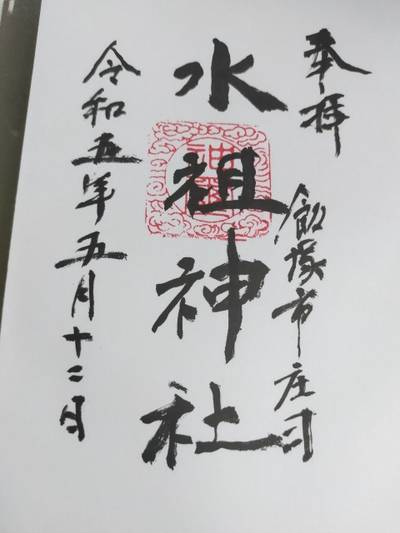 奉拝
飯塚市庄司
水祖神社
令和五年五月十二日